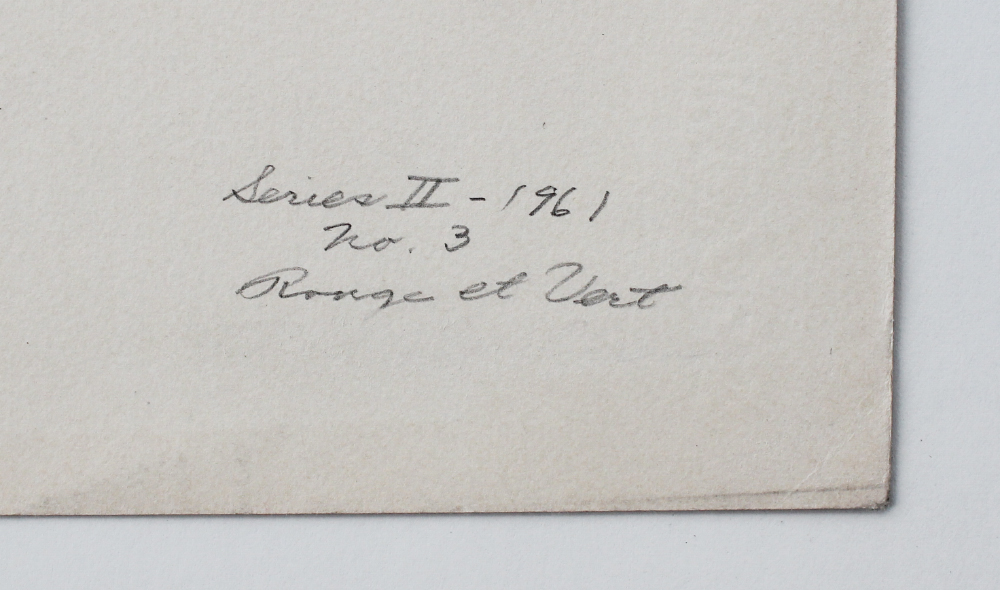 Series II - 1961
No. 3
Rouge et Vert